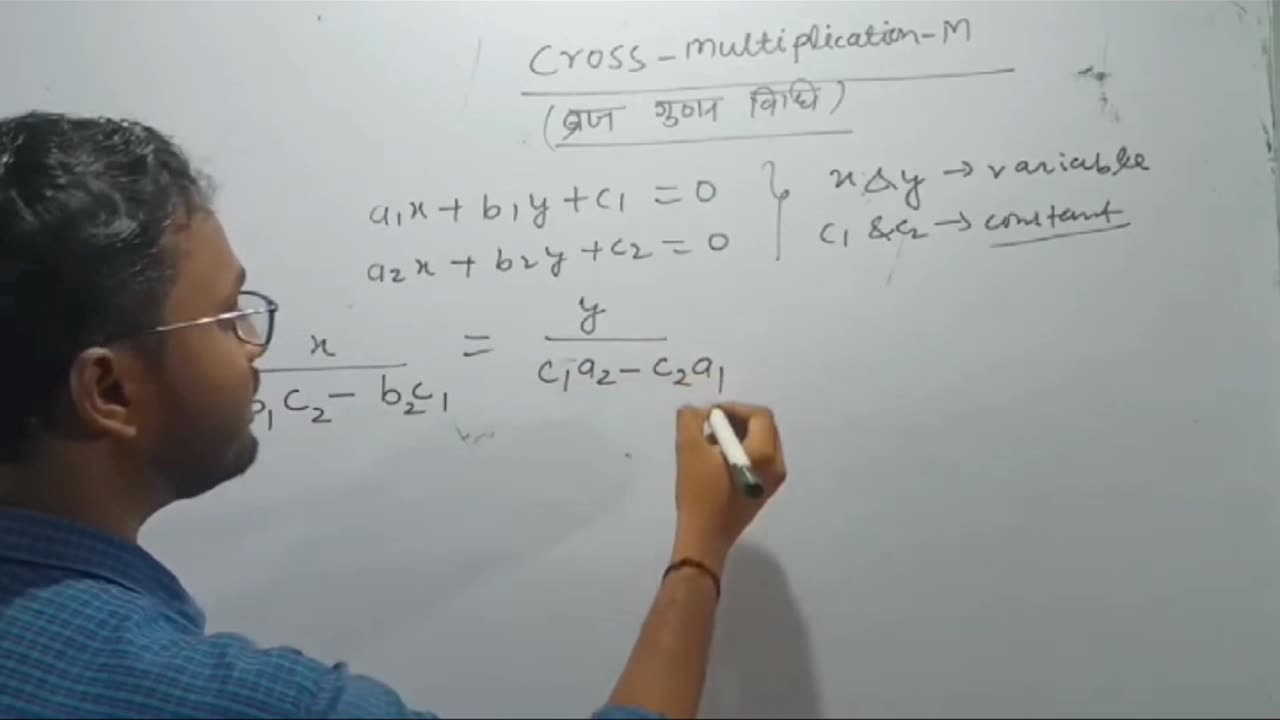 Cross-multiplication-M
(व्रज गुणन विधि)
a₁x + b₁y + c₁ = 0
a₂x + b₂y + c₂ = 0
x & y → variable
c₁ & c₂ → constant
x / b₁c₂ - b₂c₁ = y / c₁a₂ - c₂a₁